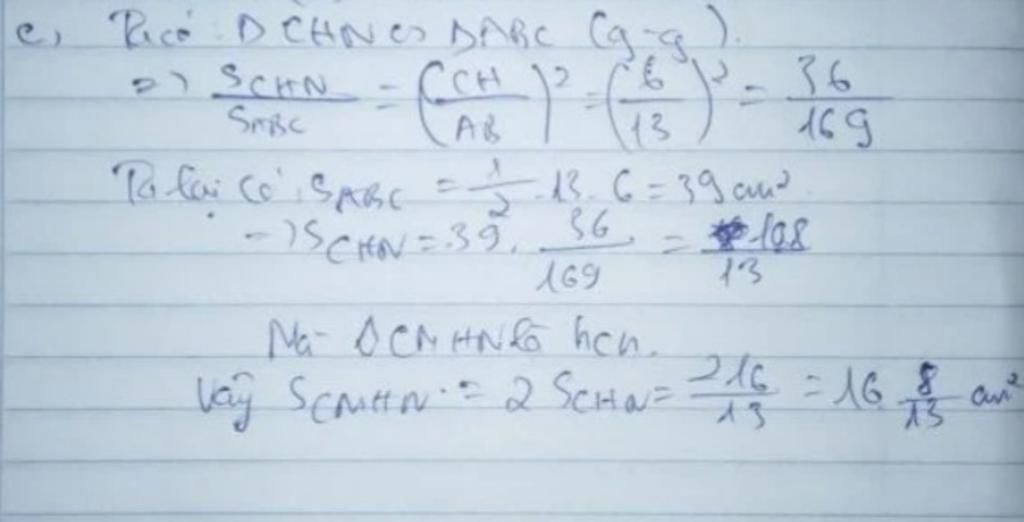 c, Ta có: Δ CHN ∽ ΔABC (g-g).
=> S_CHN/S_ABC = (CH/AB)² = (6/13)² = 36/169
Ta lại có: S_ABC = 1/2 . 13 . 6 = 39 cm².
=> S_CHN = 39 . 36/169 = 108/13
Mà ◊CMHN là hcn.
Vậy S_CMHN = 2 S_CHN = 216/13 = 16 8/13 cm²